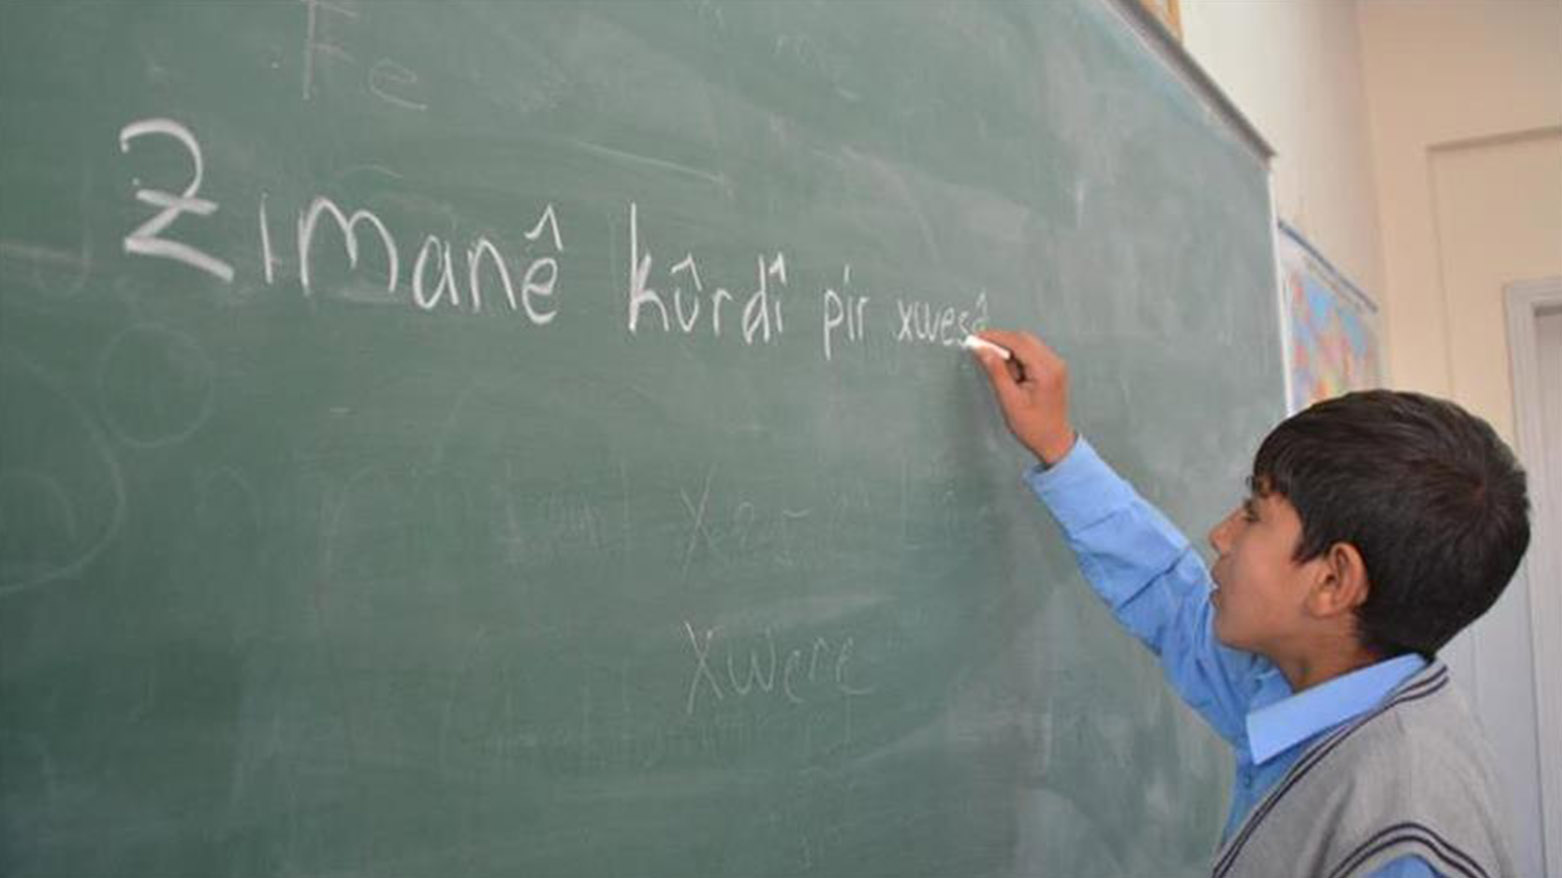 Fe
Zımanê kûrdî pir xwesê
Xwere